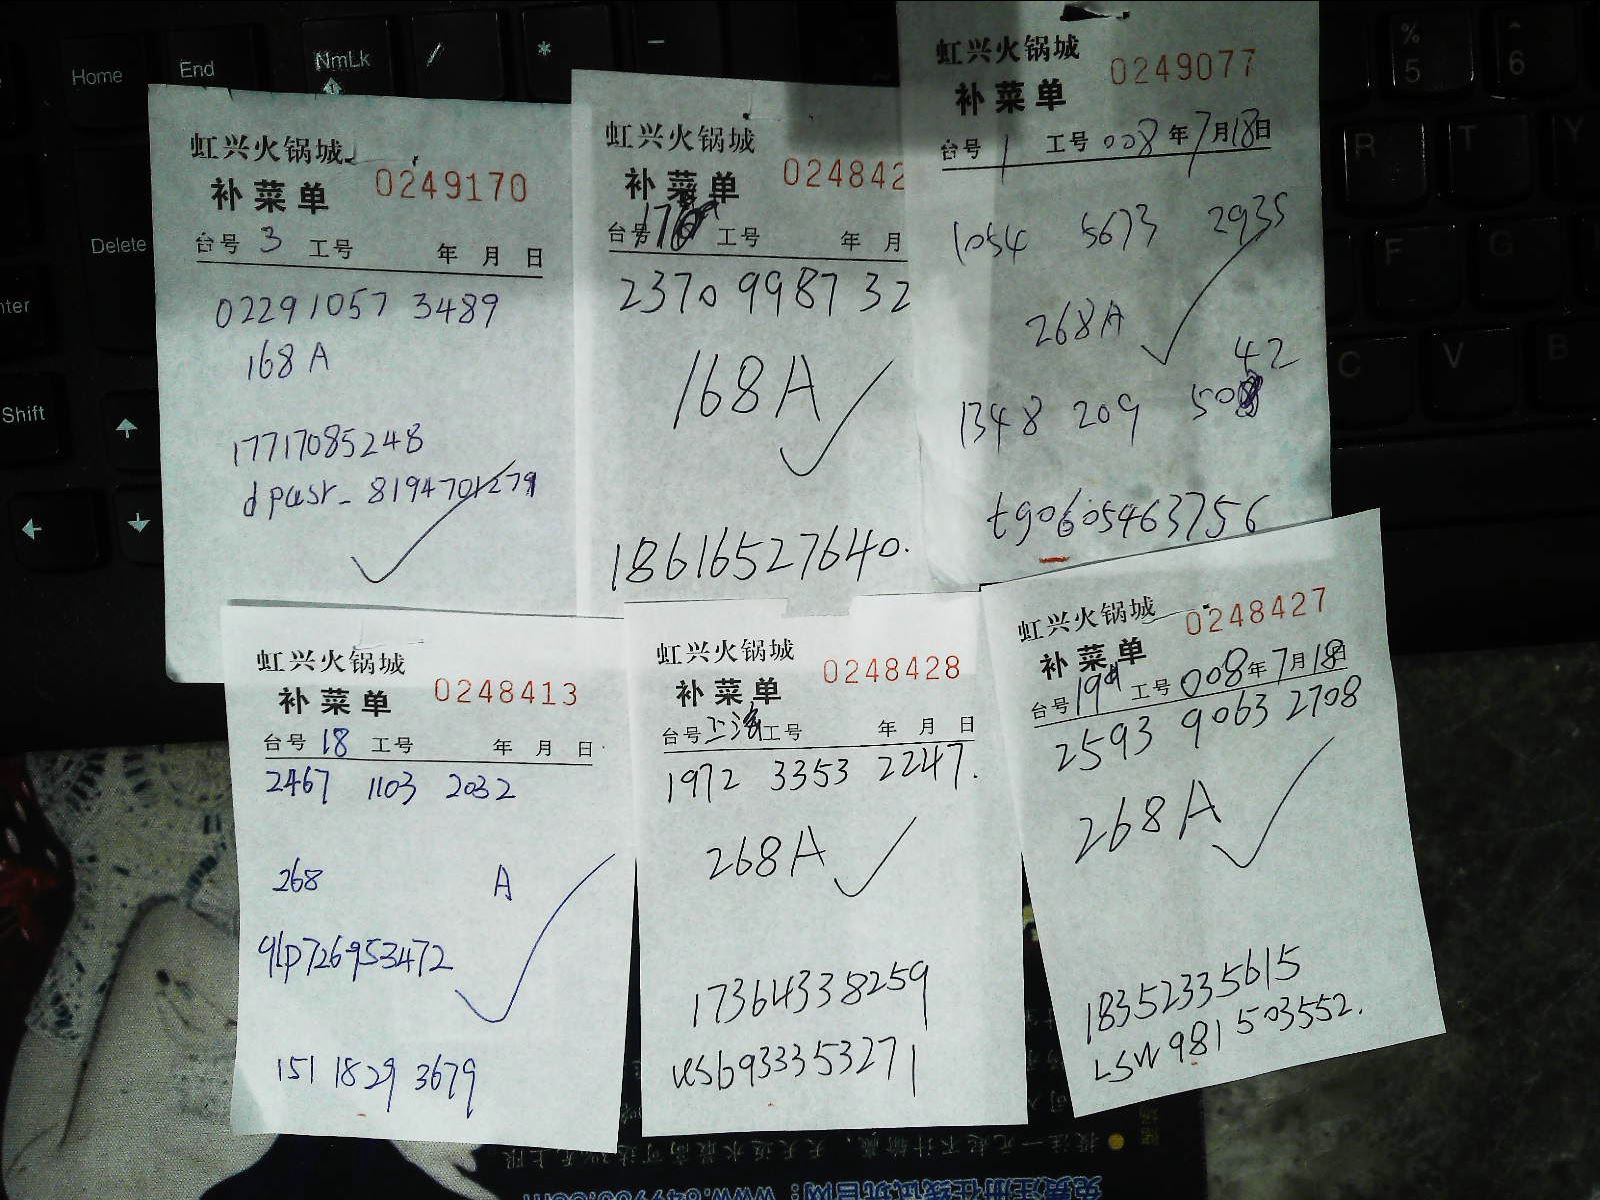 Home
End
NmLk
/
*
−
%
5
^
6
Delete
R
T
Y
F
G
Shift
C
V
B
虹兴火锅城
补菜单 0249170
台号 3 工号 年 月 日
02291057 3489
168 A
17717085248
虹兴火锅城
补菜单 024842
台号 工号 年 月
2370 9987 32
168 A
18616527640.
虹兴火锅城 0249077
补菜单
台号 1 工号 008 年 7 月 18 日
1054 5673 2935
268 A
42
1348 209 50
t90605463756
虹兴火锅城
补菜单 0248413
台号 18 工号 年 月 日
2467 1103 2032
268 A
151 1829 3679
虹兴火锅城
补菜单 0248428
台号 上海 工号 年 月 日
1972 3353 2247.
268 A
17364338259
虹兴火锅城 0248427
补菜单
台号 19 工号 008 年 7 月 18 日
2593 9063 2708
268 A
18352335615
LSW 981 503552.